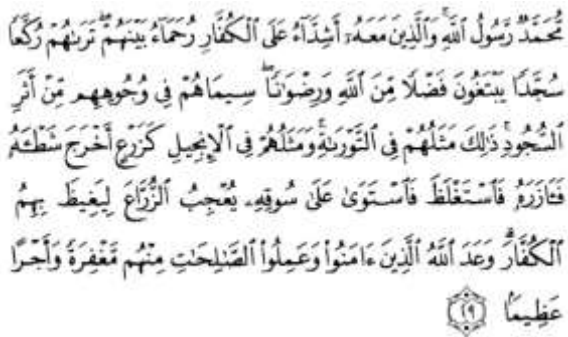 مُّحَمَّدٌ رَّسُولُ ٱللَّهِ ۚ وَٱلَّذِينَ مَعَهُۥٓ أَشِدَّآءُ عَلَى ٱلْكُفَّارِ رُحَمَآءُ بَيْنَهُمْ ۖ تَرَىٰهُمْ رُكَّعًا
سُجَّدًا يَبْتَغُونَ فَضْلًا مِّنَ ٱللَّهِ وَرِضْوَٰنًا ۖ سِيمَاهُمْ فِى وُجُوهِهِم مِّنْ أَثَرِ
ٱلسُّجُودِ ۚ ذَٰلِكَ مَثَلُهُمْ فِى ٱلتَّوْرَىٰةِ ۚ وَمَثَلُهُمْ فِى ٱلْإِنجِيلِ كَزَرْعٍ أَخْرَجَ شَطْـَٔهُۥ
فَـَٔازَرَهُۥ فَٱسْتَغْلَظَ فَٱسْتَوَىٰ عَلَىٰ سُوقِهِۦ يُعْجِبُ ٱلزُّرَّاعَ لِيَغِيظَ بِهِمُ
ٱلْكُفَّارَ ۗ وَعَدَ ٱللَّهُ ٱلَّذِينَ ءَامَنُوا۟ وَعَمِلُوا۟ ٱلصَّٰلِحَٰتِ مِنْهُم مَّغْفِرَةً وَأَجْرًا
عَظِيمًۢا ٢٩